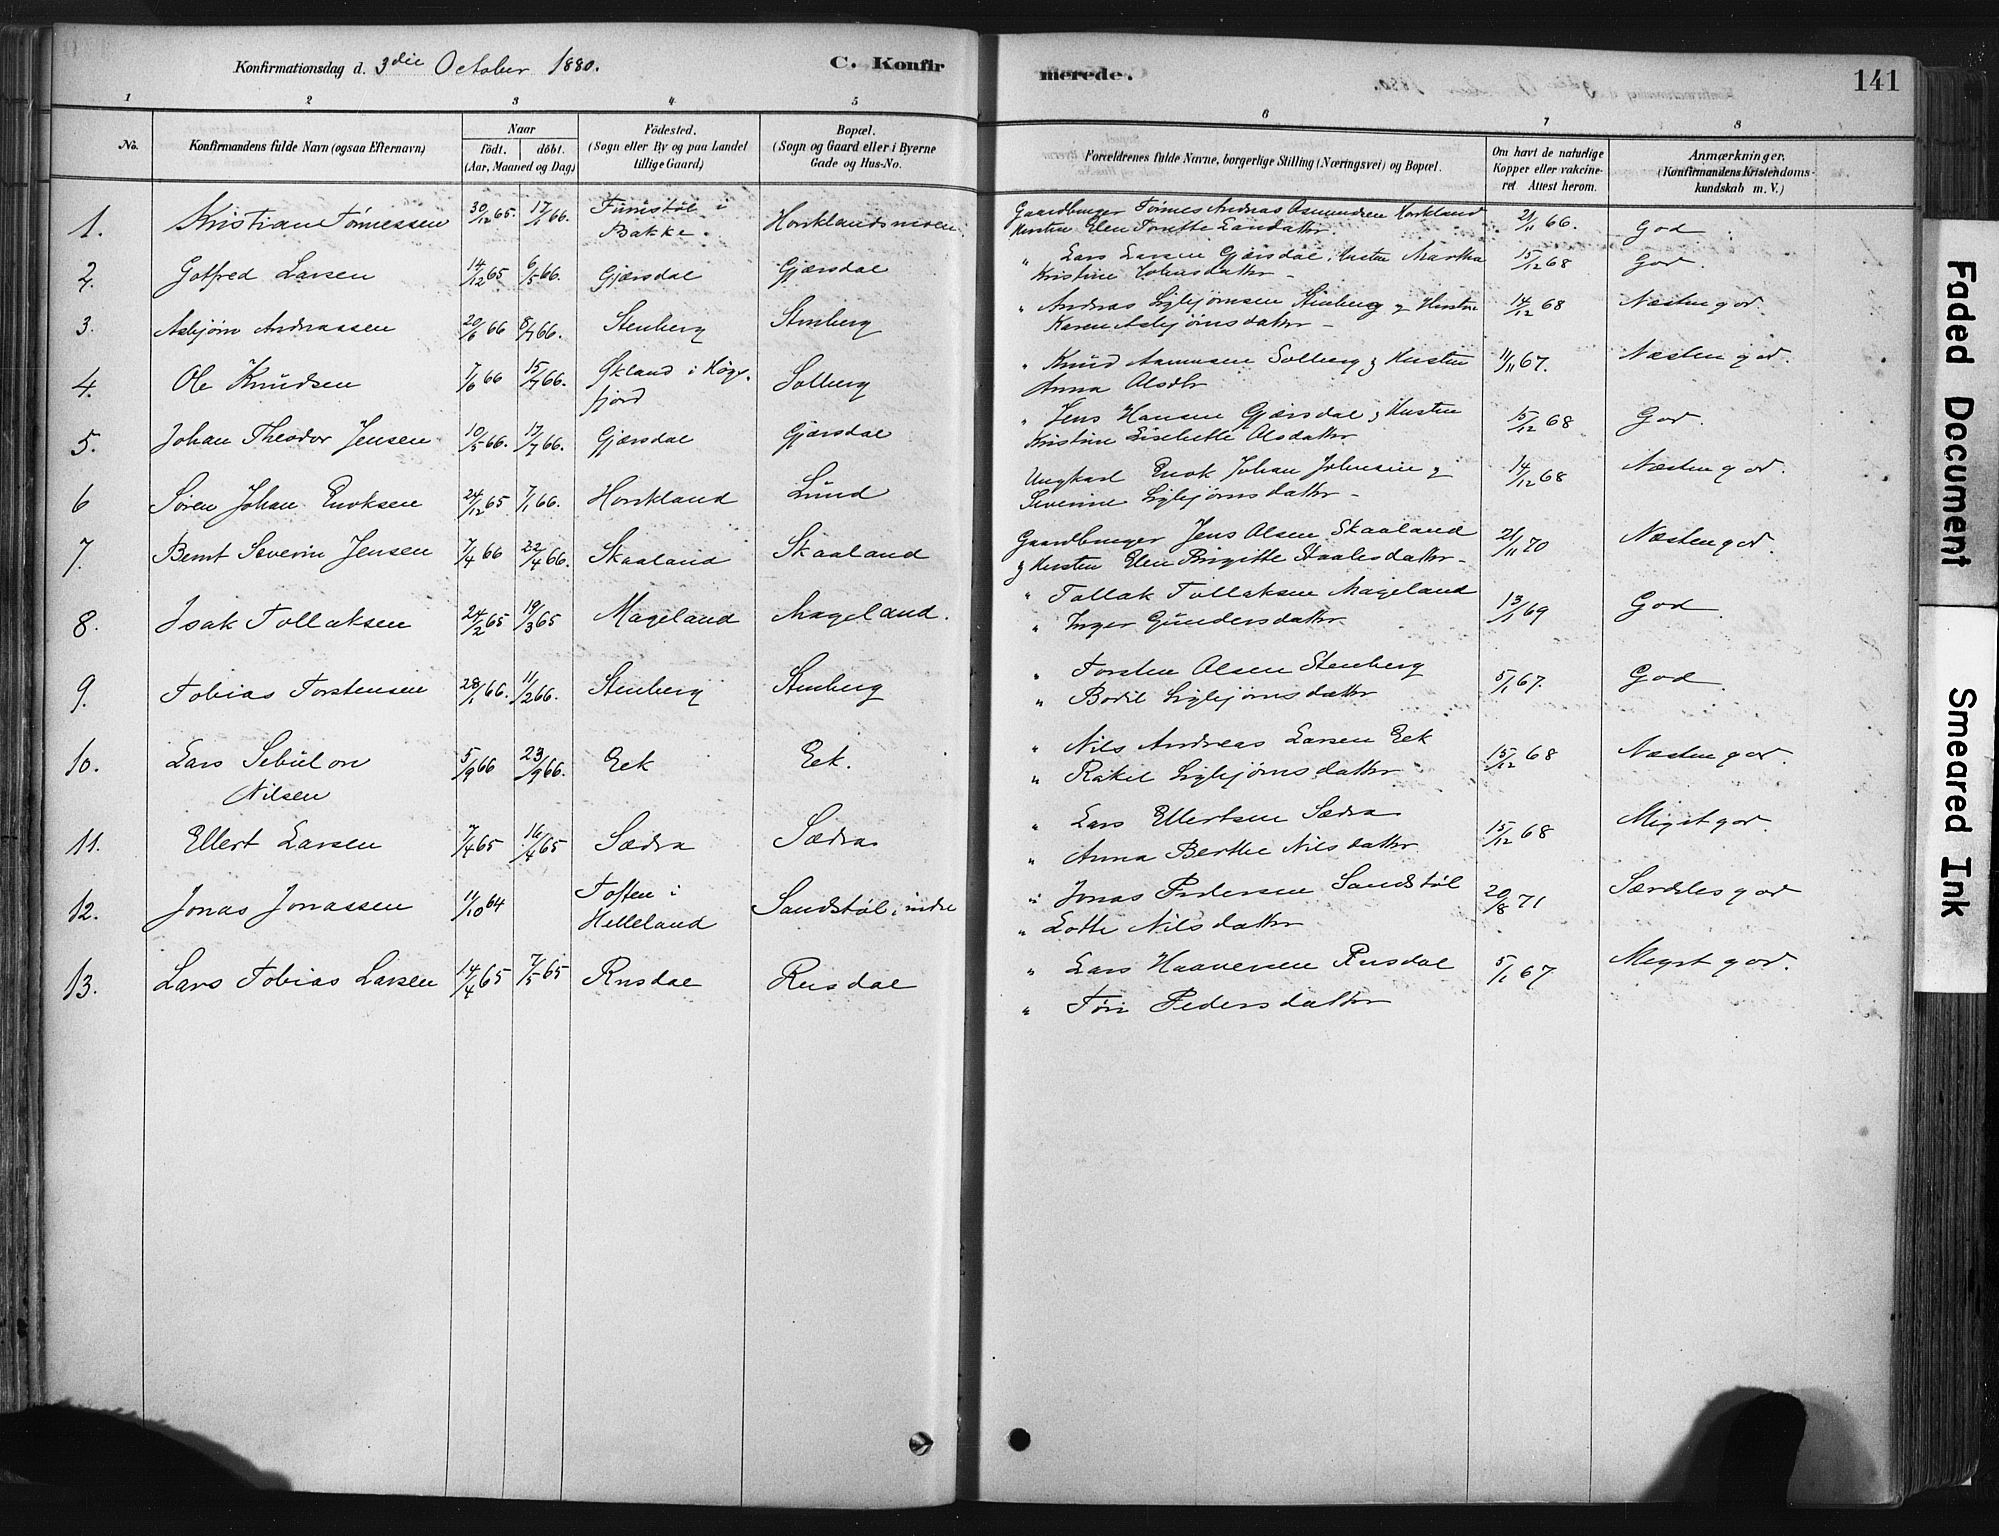 Konfirmationsdag d. 3die October 1880.
C. Konfir
merede.
141
1 2 3 4 5 6 7 8
No.
Konfirmandens fulde Navn (ogsaa Efternavn)
Naar
födt. döbt.
(Aar, Maaned og Dag)
Födested.
(Sogn eller By og paa Landet
tillige Gaard)
Bopæl.
(Sogn og Gaard eller i Byerne
Gade og Hus-No.
Forældrenes fulde Navne, borgerlige Stilling (Næringsvei) og Bopæl.
Om havt de naturlige
Kopper eller vakcine-
ret Attest herom.
Anmærkninger.
(Konfirmandens Kristendoms-
kundskab m. V.)
1. Kristian Tønnessen 30/12 65. 17/1 66. i Bakke. Gaardbruger Tønnes Andreas Osmundsen Horkland 21/11 66. God
Hustru Elen Torette Larsdattr.
2. Gotfred Larsen 14/12 65 6/5 66. Gjærsdal Gjærsdal " Lars Larsen Gjærsdal, Hustru Martha 15/12 68 God.
Kristine Johnsdattr -
3. Asbjørn Andreassen 20/6 66 8/7 66. Stenberg Stenberg " Andreas Sigbjørnsen Stenberg og Hustru 14/12 68 Næsten god.
Karen Asbjørnsdattr -
4. Ole Knudsen 7/6 66 15/7 66. Økland i Høgs- Solberg " Knud Aanensen Solberg og Hustru 11/11 67. Næsten god.
fjord Anna Olsdtr
5. Johan Theodor Jensen 10/5 66. 17/7 66. Gjærsdal Gjærsdal " Jens Hansen Gjærsdal og Hustru 15/12 68 God.
Kristine Lisebette Olsdattr
6 Søren Johan Enoksen 24/12 65. 7/1 66. Horkland Lund Ungkarl Enok Johan Johnsen og 14/12 68 Næsten god.
Severine Sigbjørnsdattr -
7. Bernt Severin Jensen 7/4 66 22/4 66. Skaaland Skaaland Gaardbruger Jens Olsen Skaaland 21/11 70 Næsten god.
og Hustru Elen Birgitte Staalesdattr -
8. Isak Tollaksen 24/2 65 19/3 65 Mageland Mageland. " Tollak Tollaksen Mageland 13/1 69 God
" Inger Gundersdattr
9. Tobias Torstensen 28/1 66. 11/2 66. Stenberg Stenberg " Torsten Olsen Stenberg 5/1 67. God
" Bodil Sigbjørnsdattr
10. Lars Sebulon 5/9 66 23/9 66. Eek Eek. " Nils Andreas Larsen Eek 15/12 68 Næsten god.
Nilsen " Rakel Sigbjørnsdattr
11. Ellert Larsen 7/4 65 16/4 65 Sædra Sædra " Lars Ellertsen Sædra 15/12 68 Meget god.
" Anna Berthe Nilsdattr
12. Jonas Jonassen 11/10 64 Toften i Sandstøl, indre " Jonas Pedersen Sandstøl 20/8 71 Særdeles god
Helleland " Lotte Nilsdattr
13. Lars Tobias Larsen 14/4 65 7/5 65 Rusdal Rusdal " Lars Haaversen Rusdal 5/1 67 Meget god.
" Tøri Pedersdattr
Faded Document
Smeared Ink